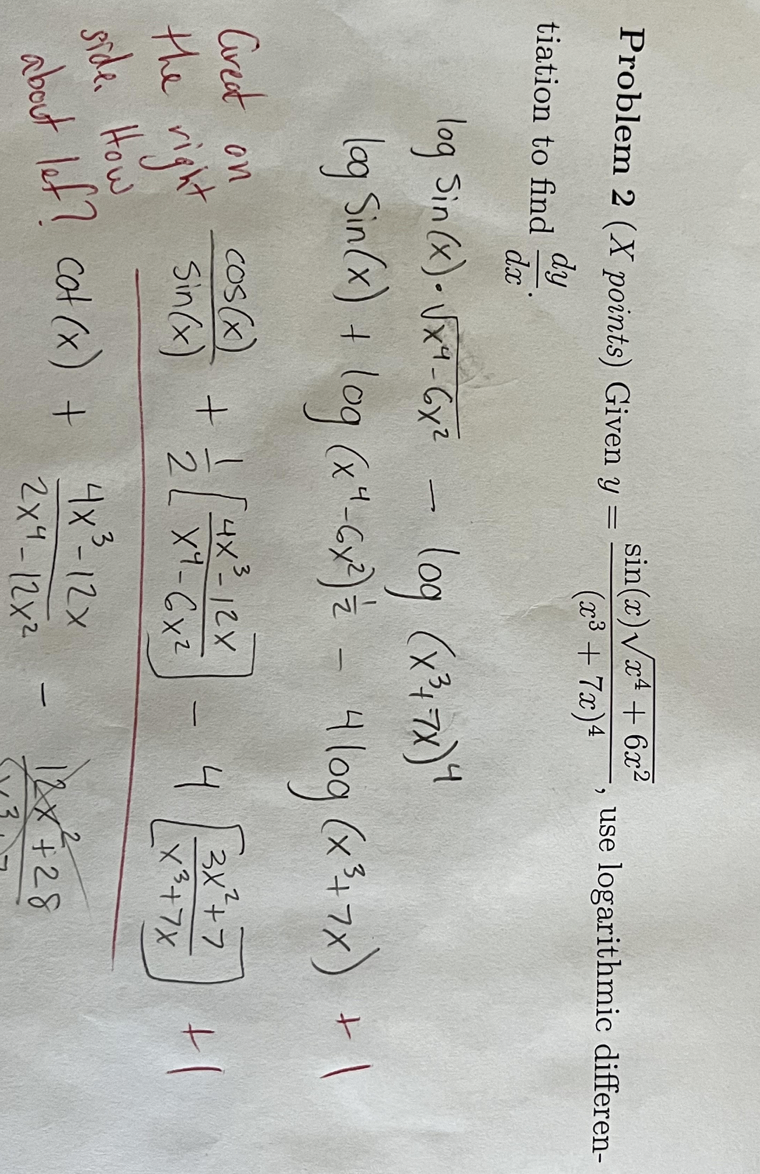 Problem 2 (X points) Given y = \frac{\sin(x)\sqrt{x^4 + 6x^2}}{(x^3 + 7x)^4}, use logarithmic differen-
tiation to find \frac{dy}{dx}.
log Sin(x)·\sqrt{x^4 - 6x^2} - log (x^3+7x)^4
log Sin(x) + log (x^4 - 6x^2)^{\frac{1}{2}} - 4 log (x^3 + 7x) + 1
\frac{cos(x)}{sin(x)} + \frac{1}{2} [\frac{4x^3 - 12x}{x^4 - 6x^2}] - 4 [\frac{3x^2 + 7}{x^3 + 7x}] + 1
Great on
the right
side. How
about lef?
cot(x) + \frac{4x^3 - 12x}{2x^4 - 12x^2} - \frac{12x^2 + 28}{x^3 + 7}